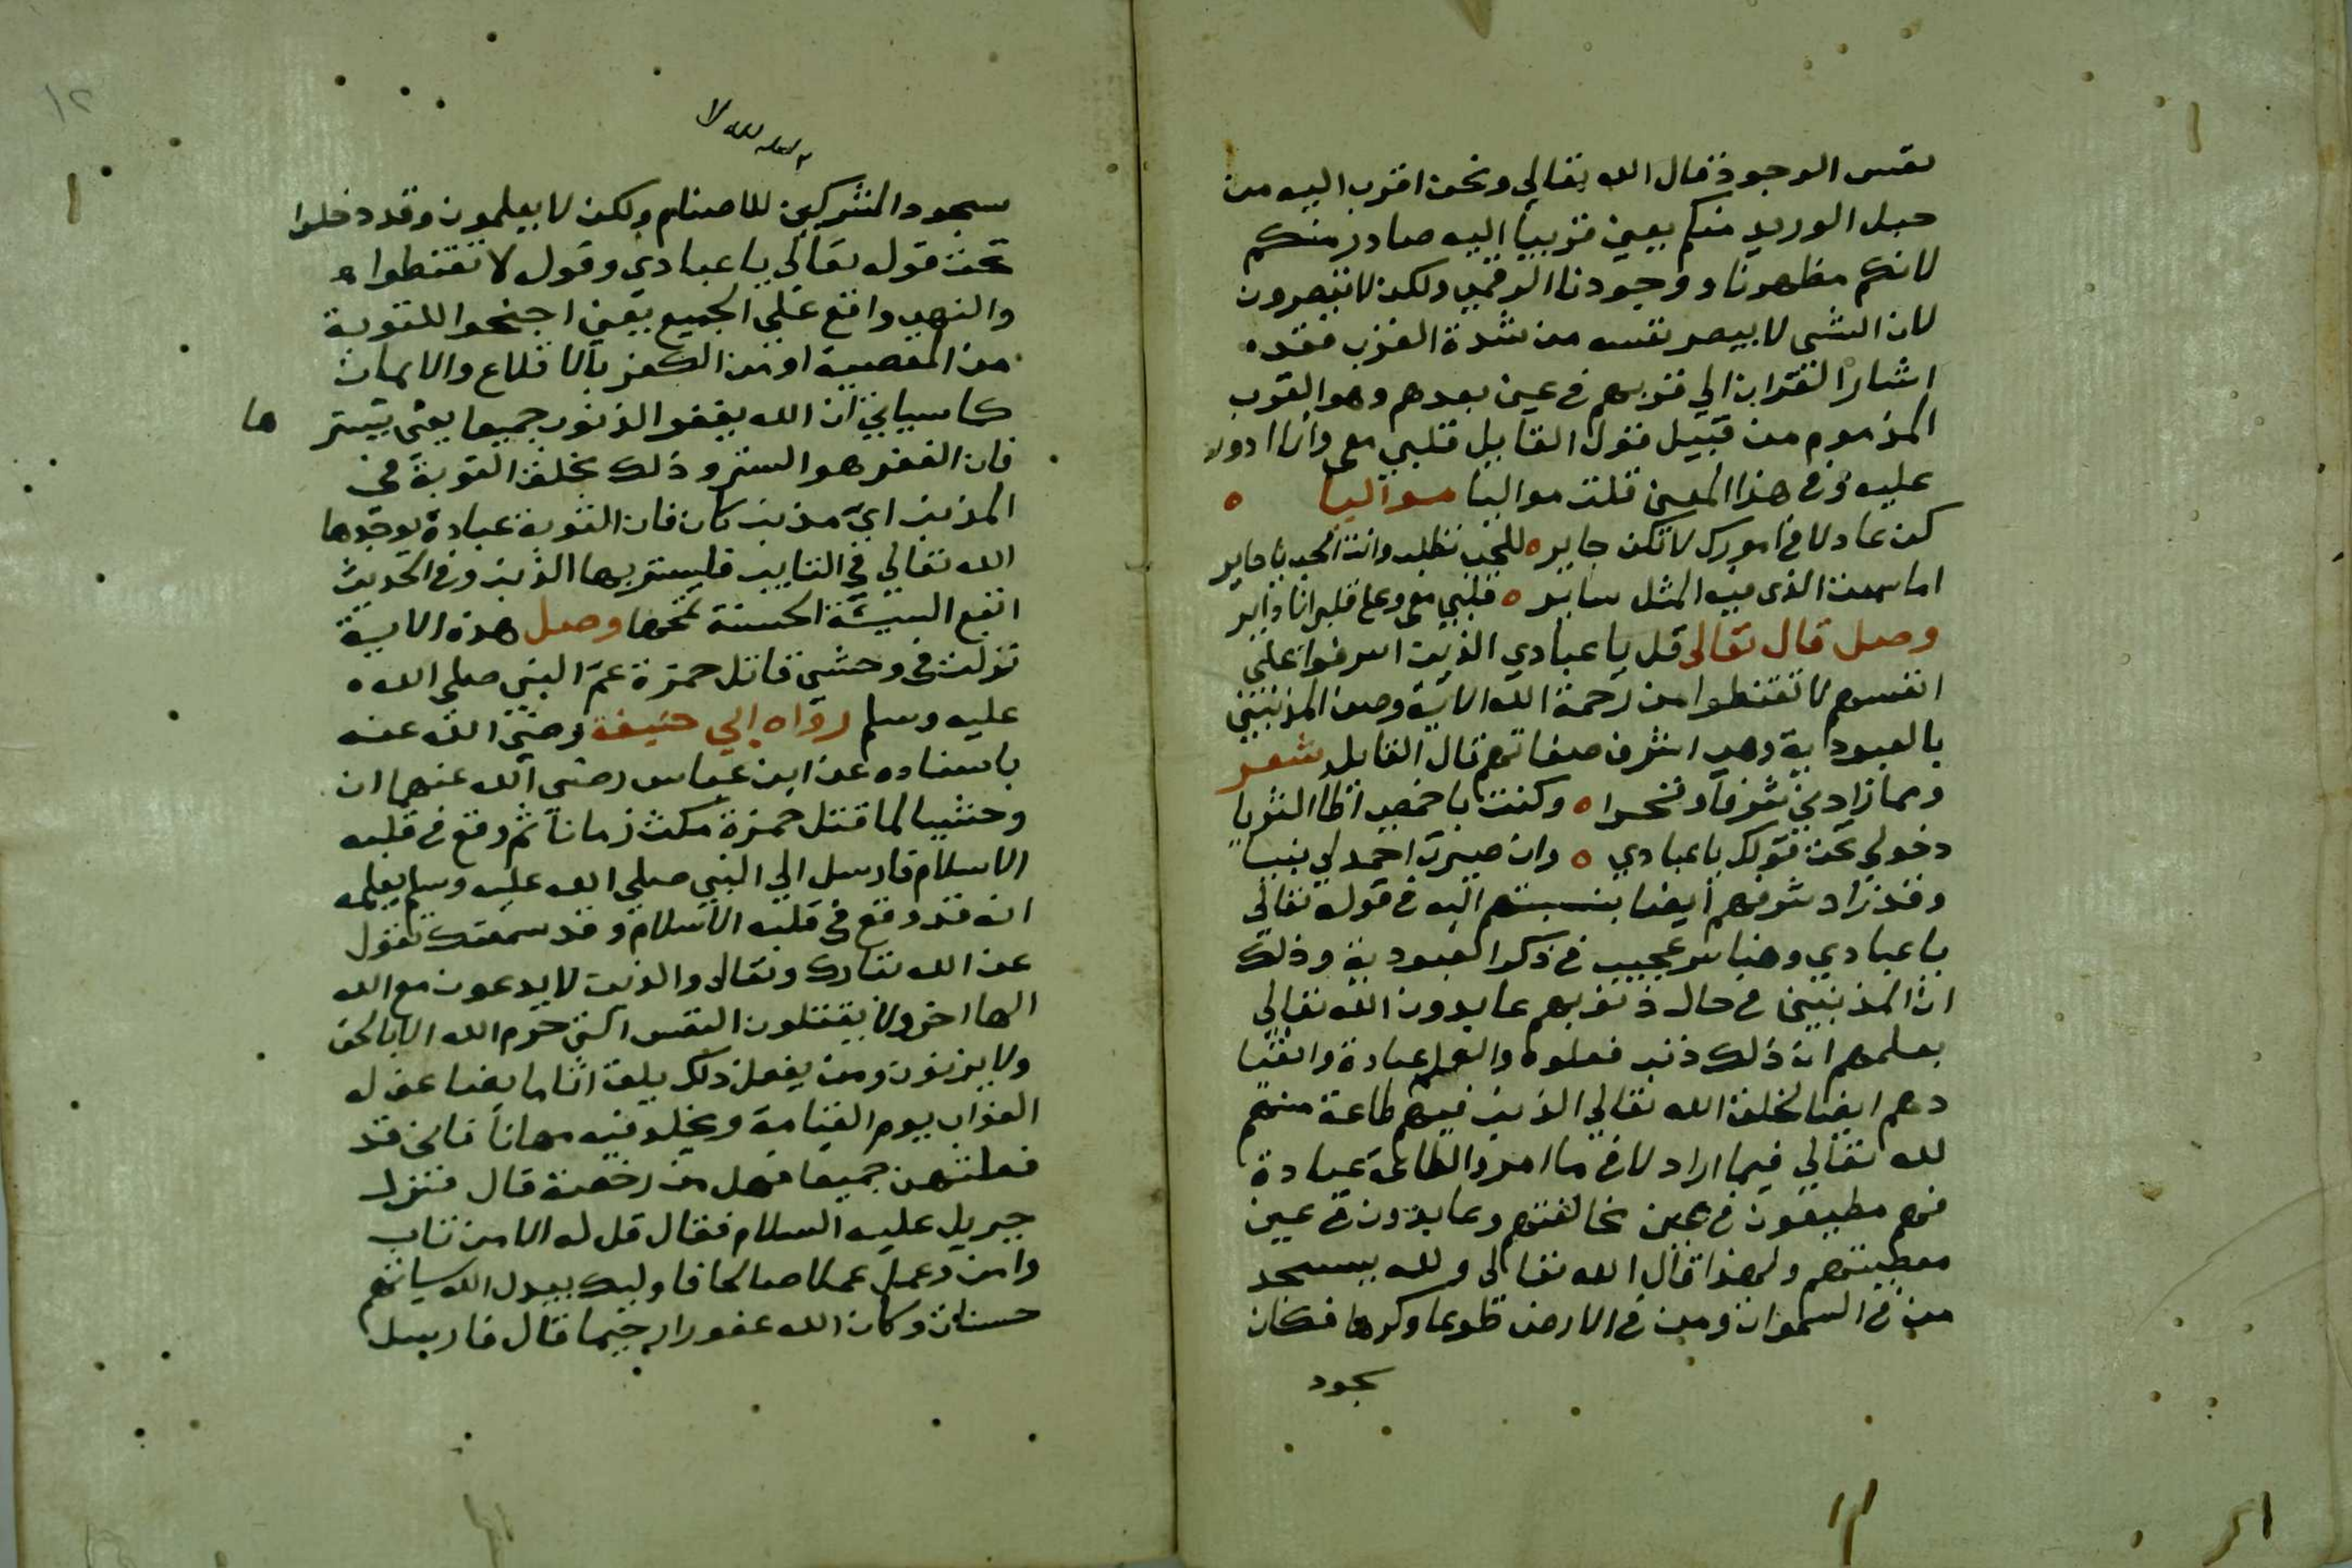 نفس الوجود فقال الله تعالي ونحن اقرب اليه من
حبل الوريد منكم يعني قريبا اليه صادر منكم
لانكم مظهرنا ووجودنا الوهمي ولكن لا تبصرون
لان الشي لا يبصر نفسه من شدة القرب فقد
اشار القران الي قربهم في عين بعدهم وهو القرب
المذموم من قبيل قول القايل قلبي معي وانا ادور
عليه وفي هذا المعني قلت مواليا مواليا ه
كن عادلا في امورك لا تكن جاير ه للحب تطلب وانت الحب يا حاير
اما سمعت الذي فيه المثل ساير ه قلبي معي وعلى قلبي انا داير
وصل قال تعالى قل يا عبادي الذين اسرفوا علي
انفسهم لا تقنطوا من رحمة الله الاية وصف المذنبين
بالعبودية وهي اشرف صفاتهم قال القايل شعر
ومما زادني شرفا وفخرا ه وكنت باخمصي اطأ الثريا
دخولي تحت قولك يا عبادي ه وان صيرت احمد لي نبيا
وقد زاد شرفهم ايضا بنسبتهم اليه في قوله تعالي
يا عبادي وهنا سر عجيب في ذكر العبودية وذلك
ان المذنبين في حال ذنوبهم عابدون الله تعالي
بعلمهم ان ذلك ذنب فعلوه والعلم عبادة وانقيا
دهم ايضا لخلق الله تعالي الذنب فيهم طاعة منهم
لله تعالي فيما اراد لا في ما امر والطاعة عبادة
فهم مطيعون في عين مخالفتهم وعابدون في عين
معصيتهم ولهذا قال الله تعالي ولله يسجد
من في السموات ومن في الارض طوعا وكرها فكان
سجود
١٢
سجود المشركين للاصنام ولكن لا يعلمون وقد دخلوا
تحت قوله تعالي يا عبادي وقول لا تقنطوا
والنهي واقع علي الجميع يعني اجنحوا للتوبة
من المعصية او من الكفر بالاقلاع والايمان
كما سياتي ان الله يغفر الذنوب جميعا يعني يستر ها
فان الغفر هو الستر وذلك بخلق التوبة في
المذنب اي مذنب كان فان التوبة عبادة يوجدها
الله تعالي في التايب فليستر بها الذنب وفي الحديث
اتبع السيئة الحسنة تمحها وصل هذه الاية
نزلت في وحشي قاتل حمزة عم النبي صلي الله
عليه وسلم رواه ابي حنيفة رضي الله عنه
باسناده عن ابن عباس رضي الله عنهما ان
وحشيا لما قتل حمزة مكث زمانا ثم وقع في قلبه
الاسلام فارسل الي النبي صلي الله عليه وسلم يعلمه
انه قد وقع في قلبه الاسلام وقد سمعتك تقول
عن الله تبارك وتعالى والذين لا يدعون مع الله
الها اخر ولا يقتلون النفس التي حرم الله الا بالحق
ولا يزنون ومن يفعل ذلك يلق اثاما يضاعف له
العذاب يوم القيامة ويخلد فيه مهانا فاني قد
فعلتهن جميعا فهل من رخصة قال فنزل
جبريل عليه السلام فقال قل له الا من تاب
وامن وعمل عملا صالحا فاوليك يبدل الله سياتهم
حسنات وكان الله غفورا رحيما قال فارسل